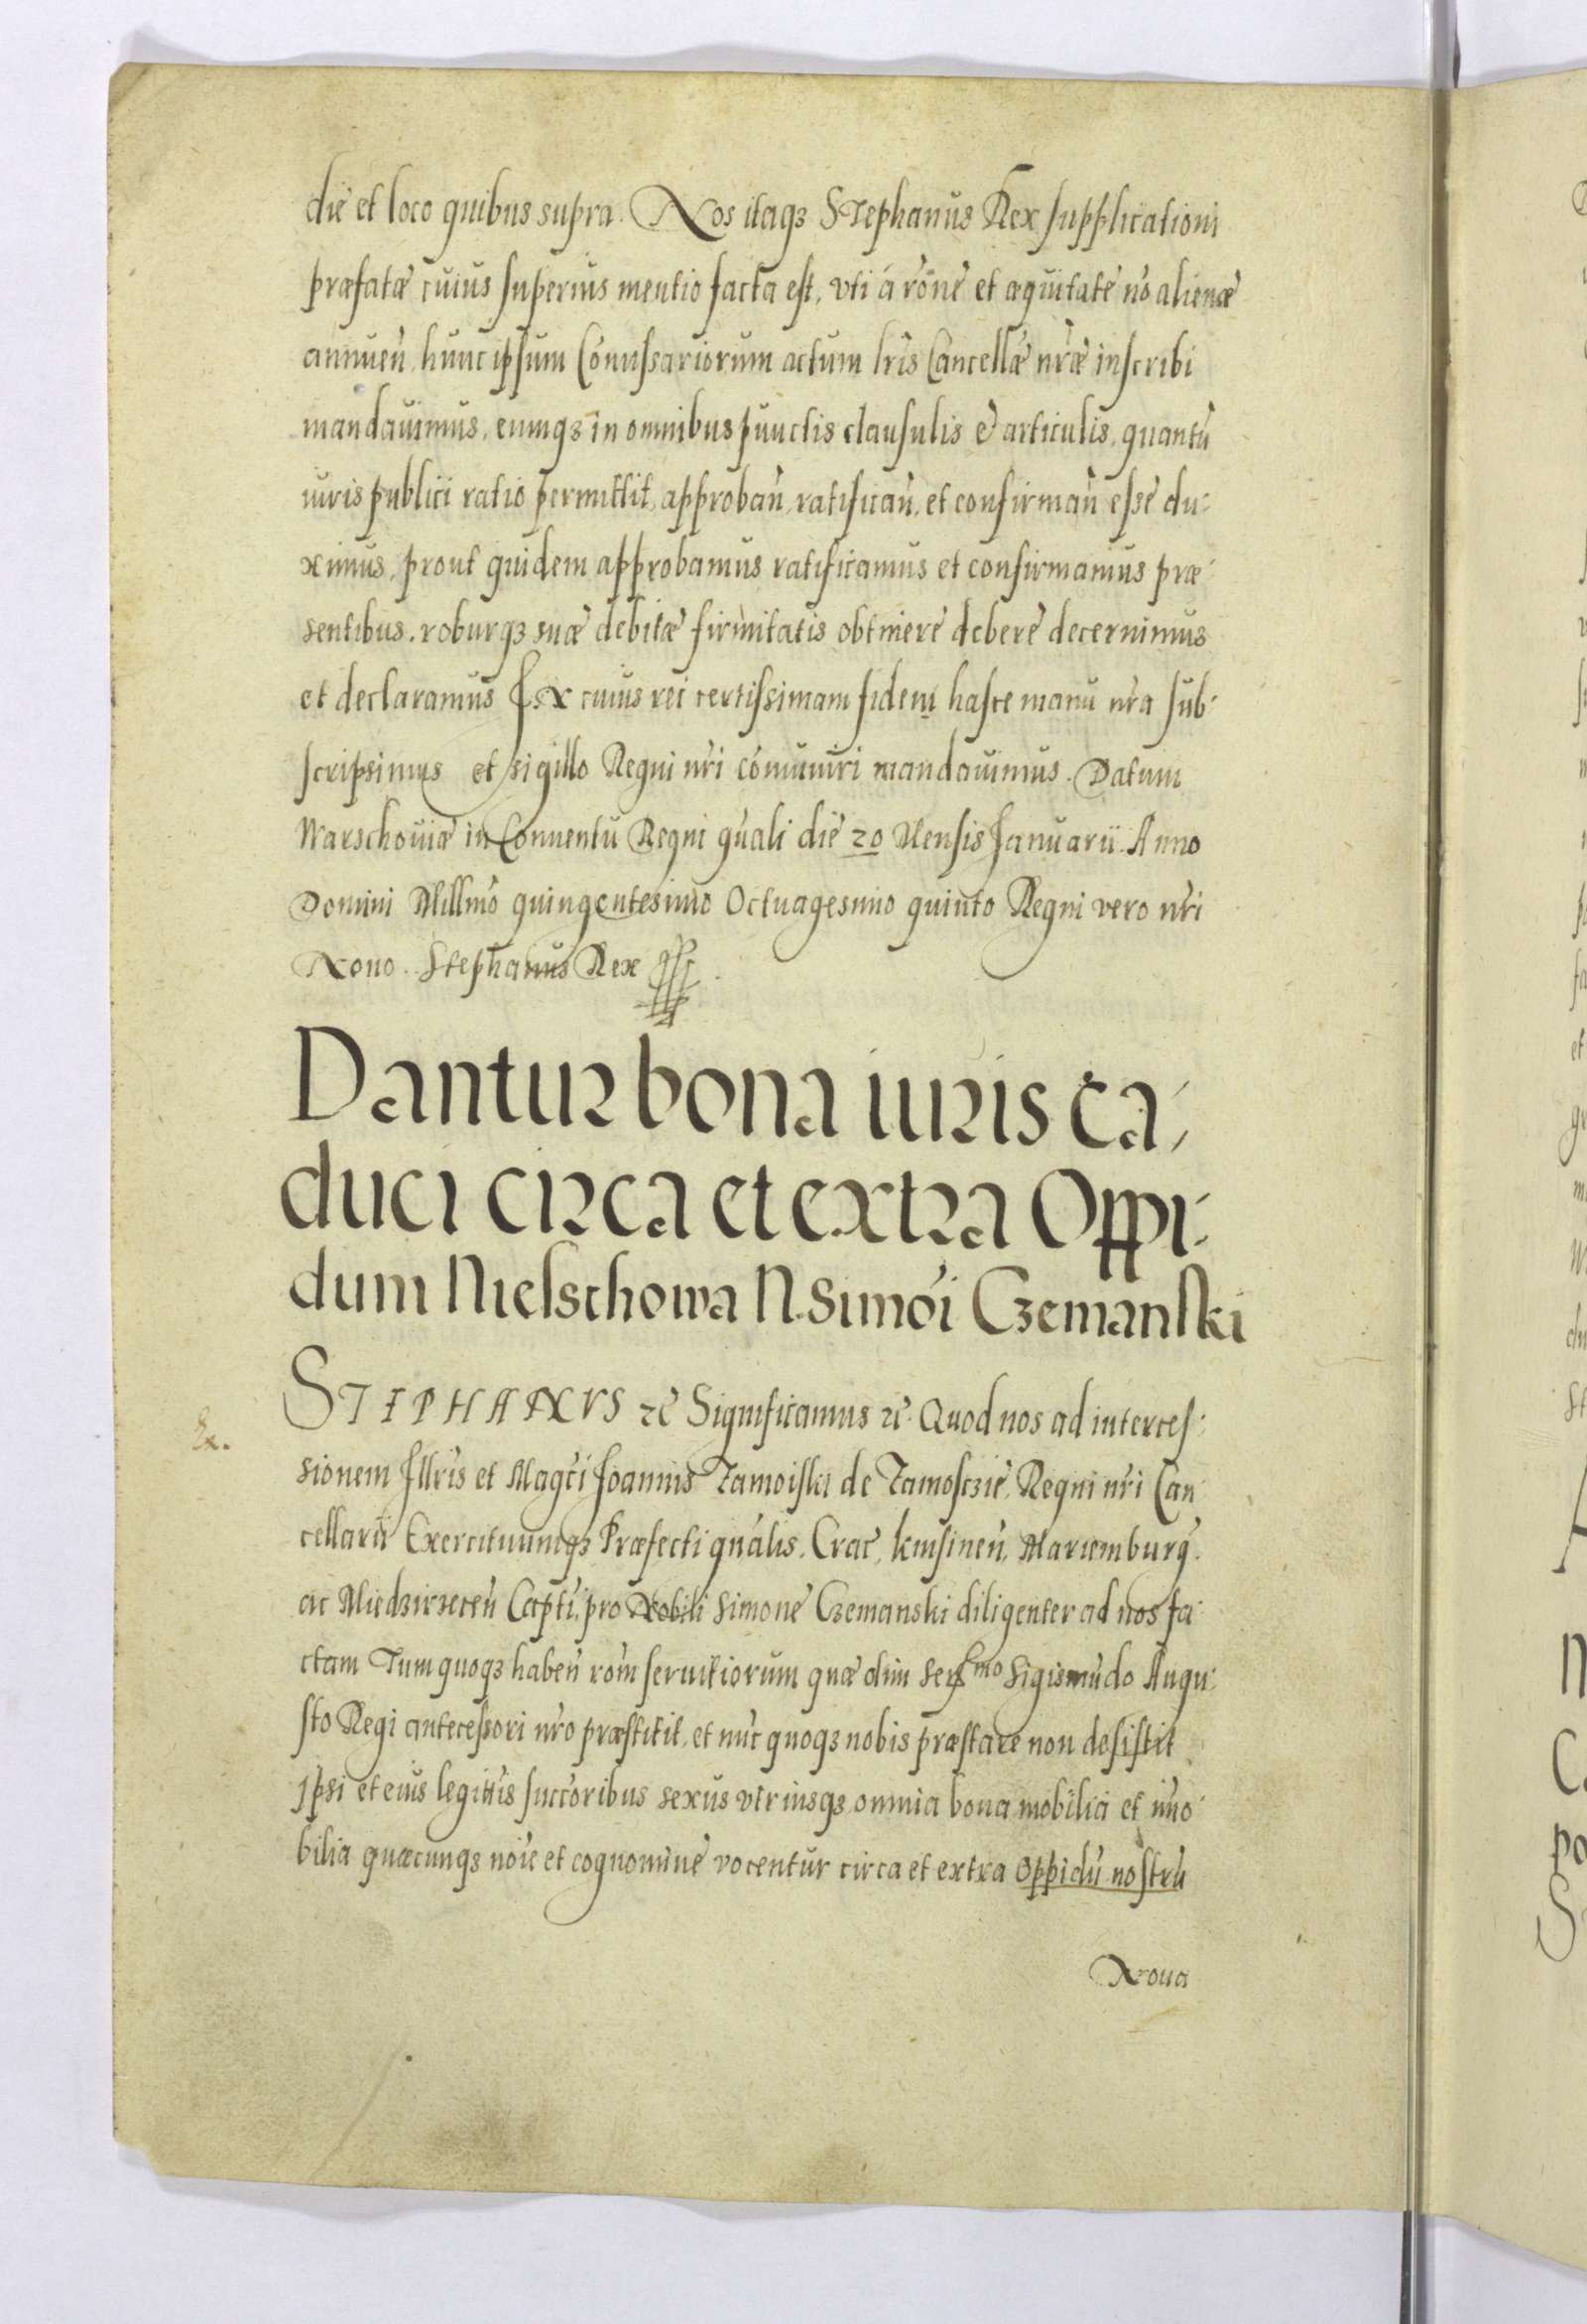 die et loco quibus supra. Nos itaqȝ Stephanus Rex supplicationi
præfatæ cuius superius mentio facta est, vti á rõne et æquitate nõ alienæ
annuen̄, hunc ipsum Com̄issariorum actum lr̃is Cancellæ nr̃æ inscribi
mandauimus, eumqȝ in omnibus punctis clausulis & articulis, quantū
iuris publici ratio permittit, approban̄, ratifican̄, et confirman̄ esse du-
ximus, prout quidem approbamus ratificamus et confirmamus præ-
sentibus, roburqȝ suæ debitæ firmitatis obtinere debere decernimus
et declaramus In cuius rei certissimam fidem hasce manu nr̃a sub-
scripsimus et sigillo Regni nr̃i com̄uniri mandauimus. Datum
Warschouiæ in Conuentu Regni gñali die 20 Mensis Januarii. Anno
Domini Millmo quingentesimo Octuagesimo quinto Regni vero nr̃i
Nono. Stephanus Rex
Dantur bona iuris ca-
duci circa et extra Oppi-
dum Nieschowa N. Simōi Czemanski
Ex.
STEPHANVS &c Significamus &c. Quod nos ad interces-
sionem Illr̃is et Magc̃i Joannis Zamoiski de Zamosczie, Regni nr̃i Can-
cellarii Exercituumqȝ Præfecti gñalis. Crac̃, knisinen̄, Mariemburg̃.
ac Miedzirzecen̄ Capti, pro Nobili Simone Czemanski diligenter ad nos fa-
ctam Tum quoqȝ haben̄ rõm seruitiorum quæ olim Serᵐᵒ Sigismūdo Augu-
sto Regi antecessori nr̃o præstitit, et nūc quoqȝ nobis præstare non desistit
Ipsi et eius legittis succ̃oribus sexus vtriusqȝ omnia bona mobilia et im̄o-
bilia quæcunqȝ nõie et cognomine vocentur circa et extra oppidū nostrū
Noua